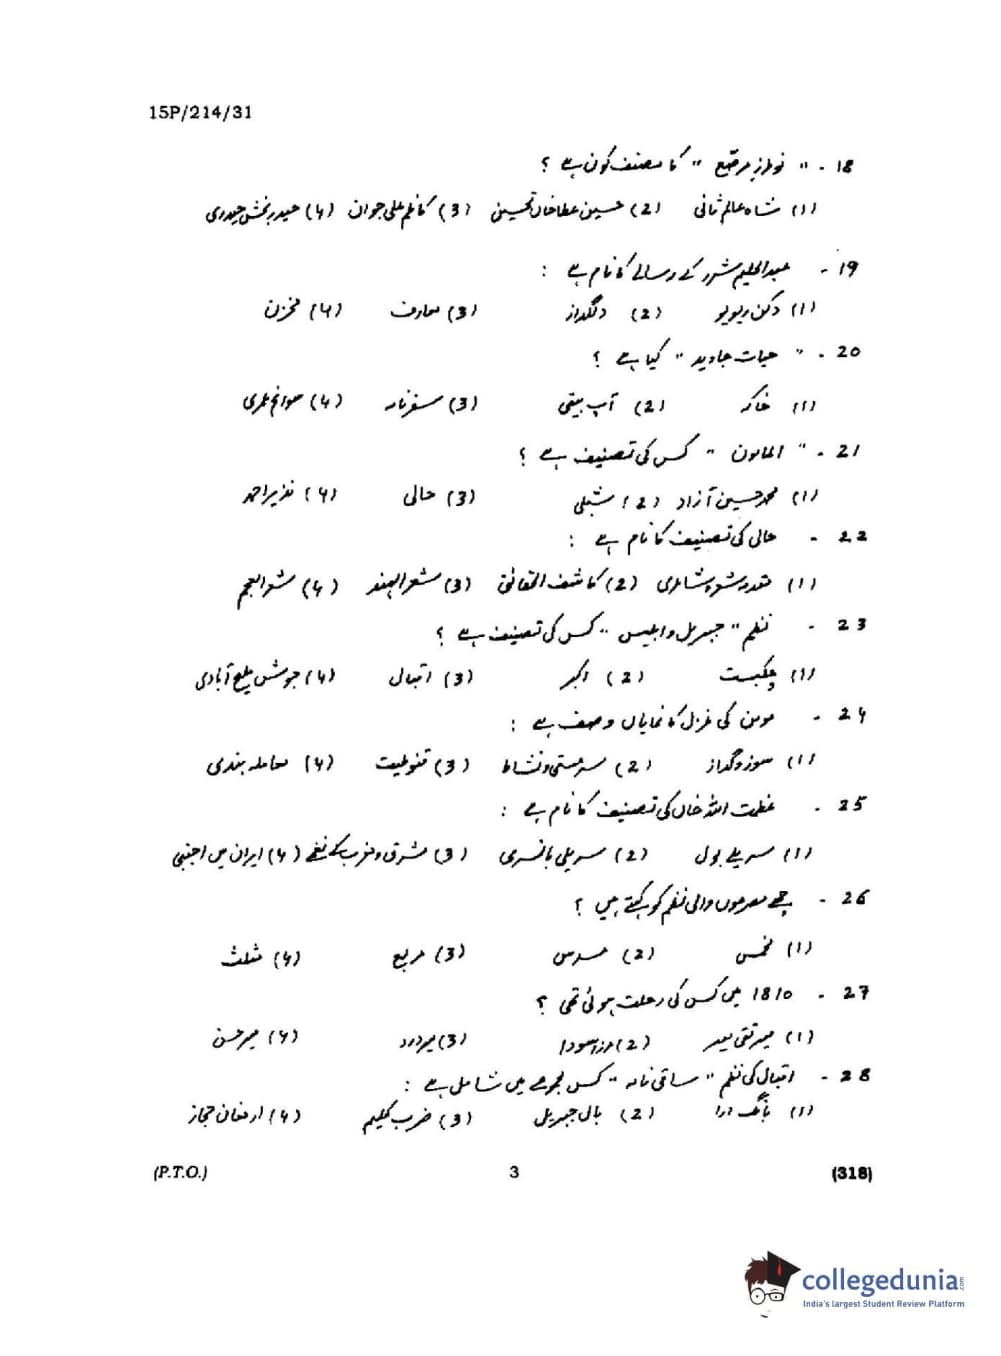 15P/214/31
18 - " نوطرزِ مرصّع " کا مصنف کون ہے ؟
(1) شاہ عالم ثانی (2) حسین عطا خاں تحسین (3) کاظم علی جوان (4) حیدر بخش حیدری
19 - عبدالحلیم شرر کے رسالے کا نام ہے :
(1) دکن ریویو (2) دلگداز (3) معارف (4) مخزن
20 - " حیات جاوید " کیا ہے ؟
(1) خاکہ (2) آپ بیتی (3) سفرنامہ (4) سوانح عمری
21 - " المامون " کس کی تصنیف ہے ؟
(1) محمد حسین آزاد (2) شبلی (3) حالی (4) نذیر احمد
22 - حالی کی تصنیف کا نام ہے :
(1) مقدمہ شعر و شاعری (2) کاشف الحقائق (3) شعر الہند (4) شعر العجم
23 - نظم " جبریل و ابلیس " کس کی تصنیف ہے ؟
(1) چکبست (2) اکبر (3) اقبال (4) جوش ملیح آبادی
24 - مومن کی غزل کا نمایاں وصف ہے :
(1) سوز و گداز (2) سرمستی و نشاط (3) قنوطیت (4) معاملہ بندی
25 - عظمت اللہ خاں کی تصنیف کا نام ہے :
(1) سریلے بول (2) سریلی بانسری (3) مشرق و مغرب کے نغمے (4) ایران میں اجنبی
26 - چھے مصرعوں والی نظم کو کہتے ہیں ؟
(1) مخمس (2) مسدس (3) مربع (4) مثلث
27 - 1810 میں کس کی رحلت ہوئی تھی ؟
(1) میر تقی میر (2) مرزا سودا (3) میر درد (4) میر حسن
28 - اقبال کی نظم " ساقی نامہ " کس مجموعے میں شامل ہے :
(1) بانگ درا (2) بال جبریل (3) ضرب کلیم (4) ارمغان حجاز
(P.T.O.) 3 (318)
collegedunia.com
India's largest Student Review Platform